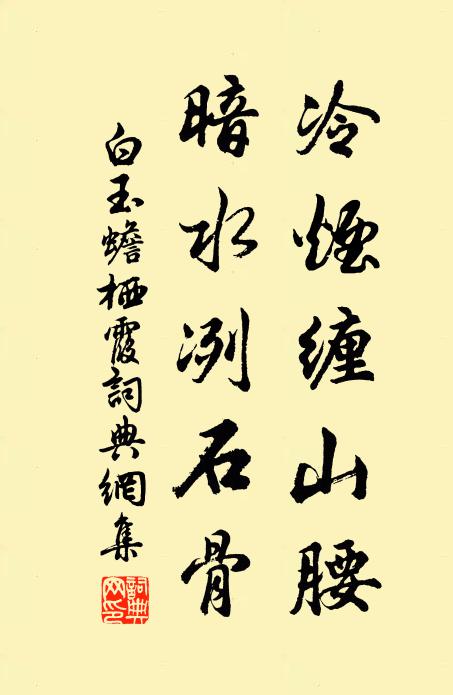 冷煙纏山腰
暗水冽石骨
白玉蟾栖霞詞典網集
詞典网印